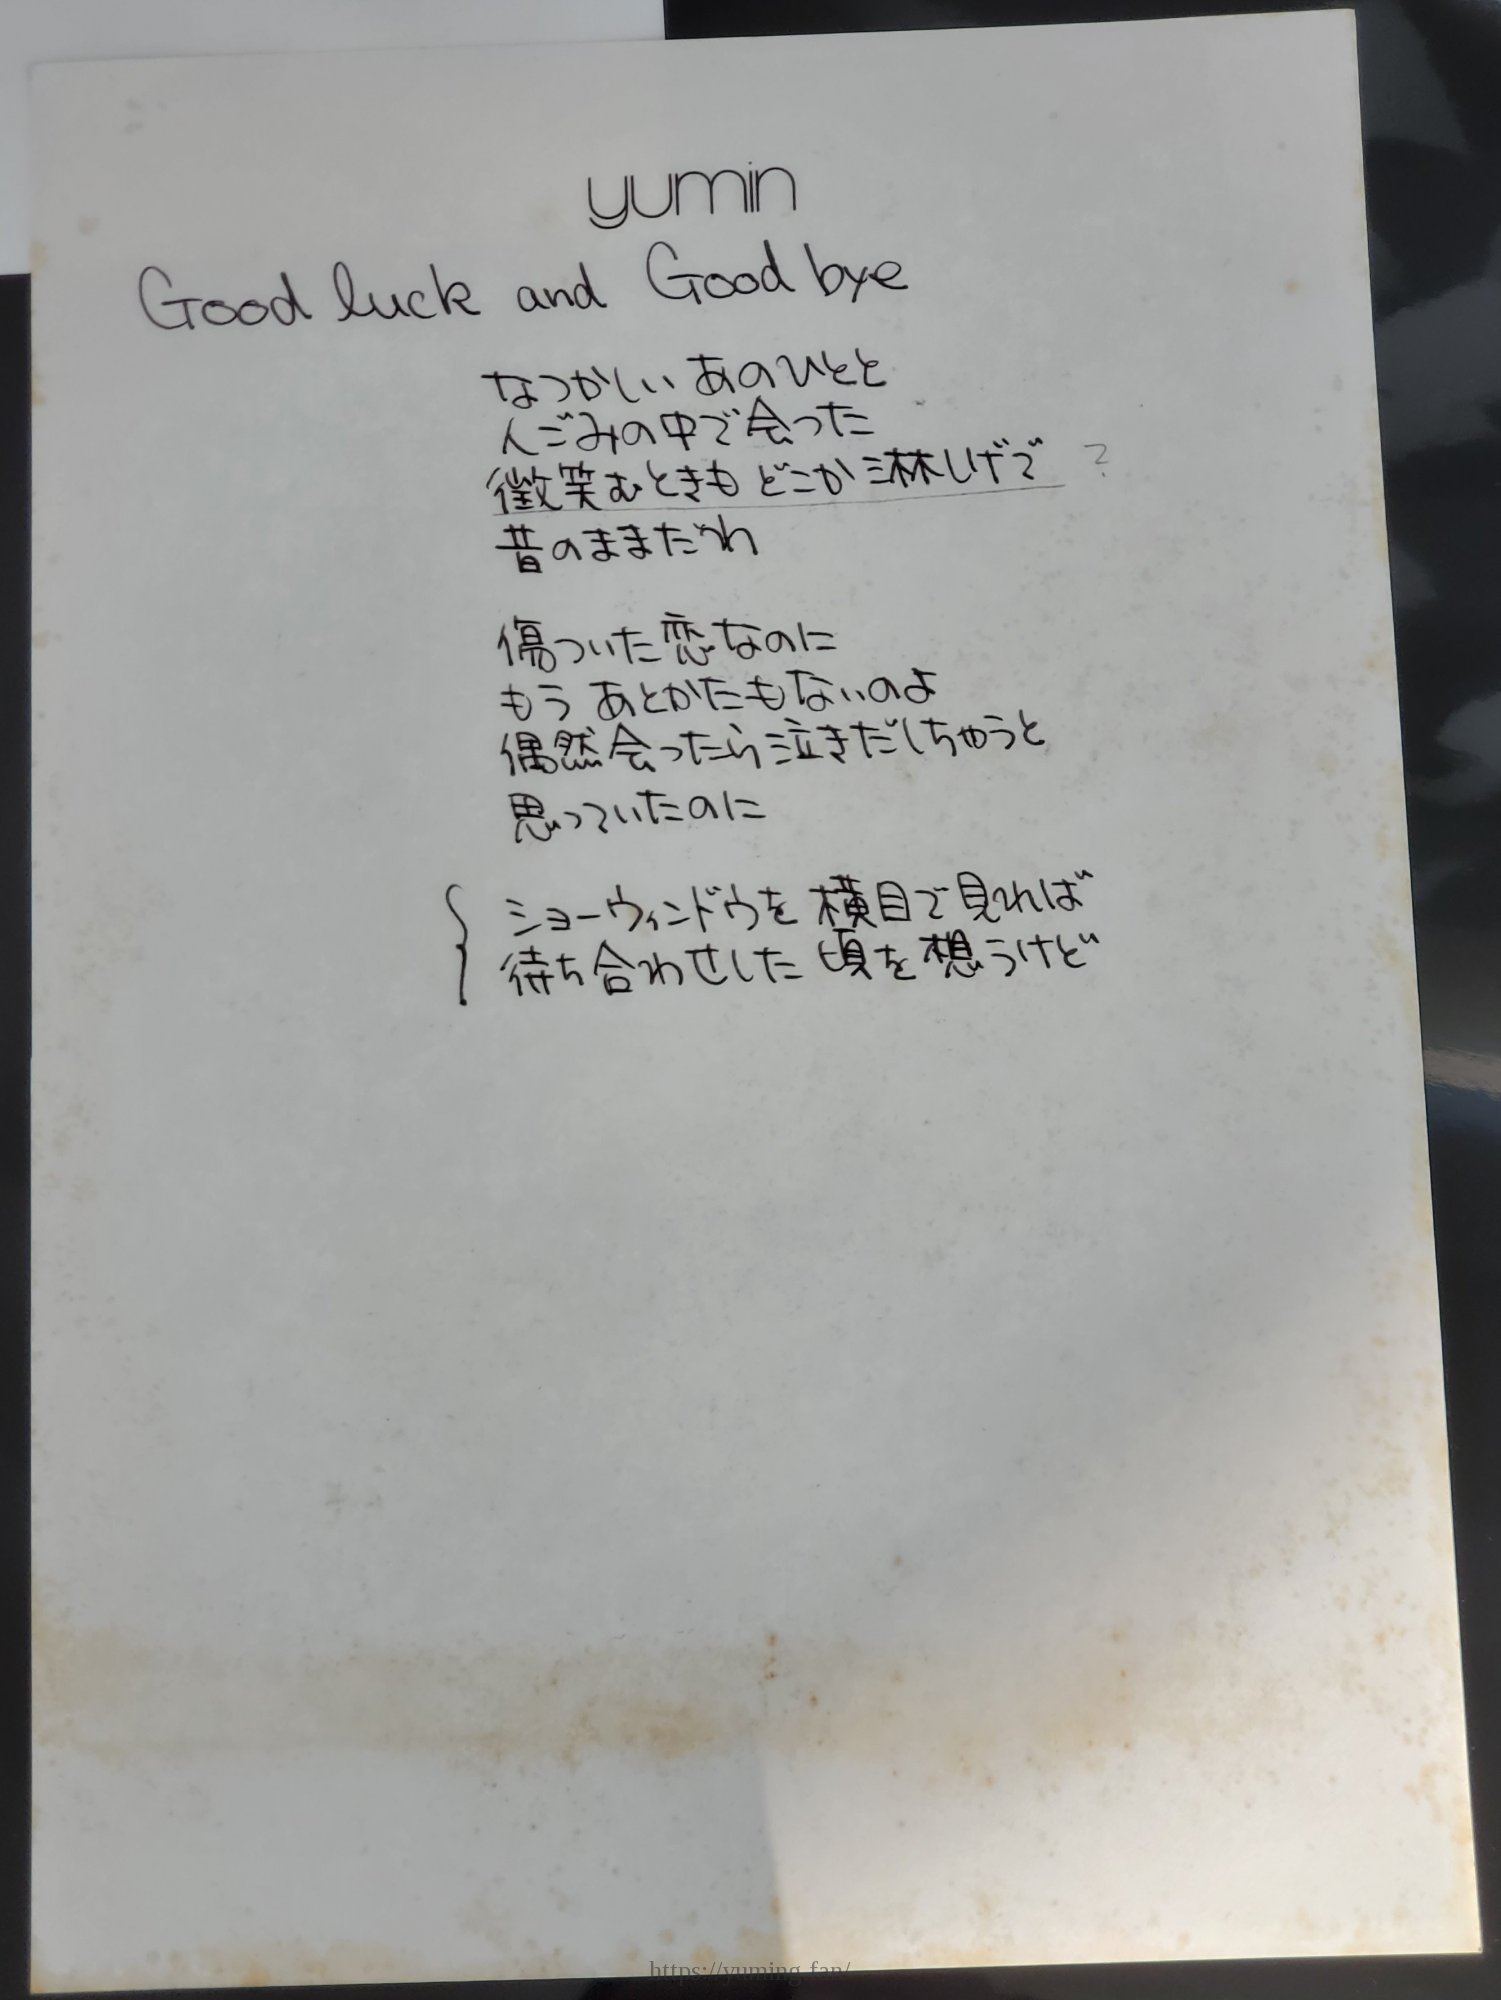 yumin
Good luck and Good bye
なつかしい あのひとと
人ごみの中で会った
微笑むときも どこか淋しげで ?
昔のままだわ
傷ついた恋なのに
もう あとかたもないのよ
偶然会ったら泣きだしちゃうと
思っていたのに
ショーウィンドウを 横目で見れば
待ち合わせした 頃を想うけど
https://yuming.fan/